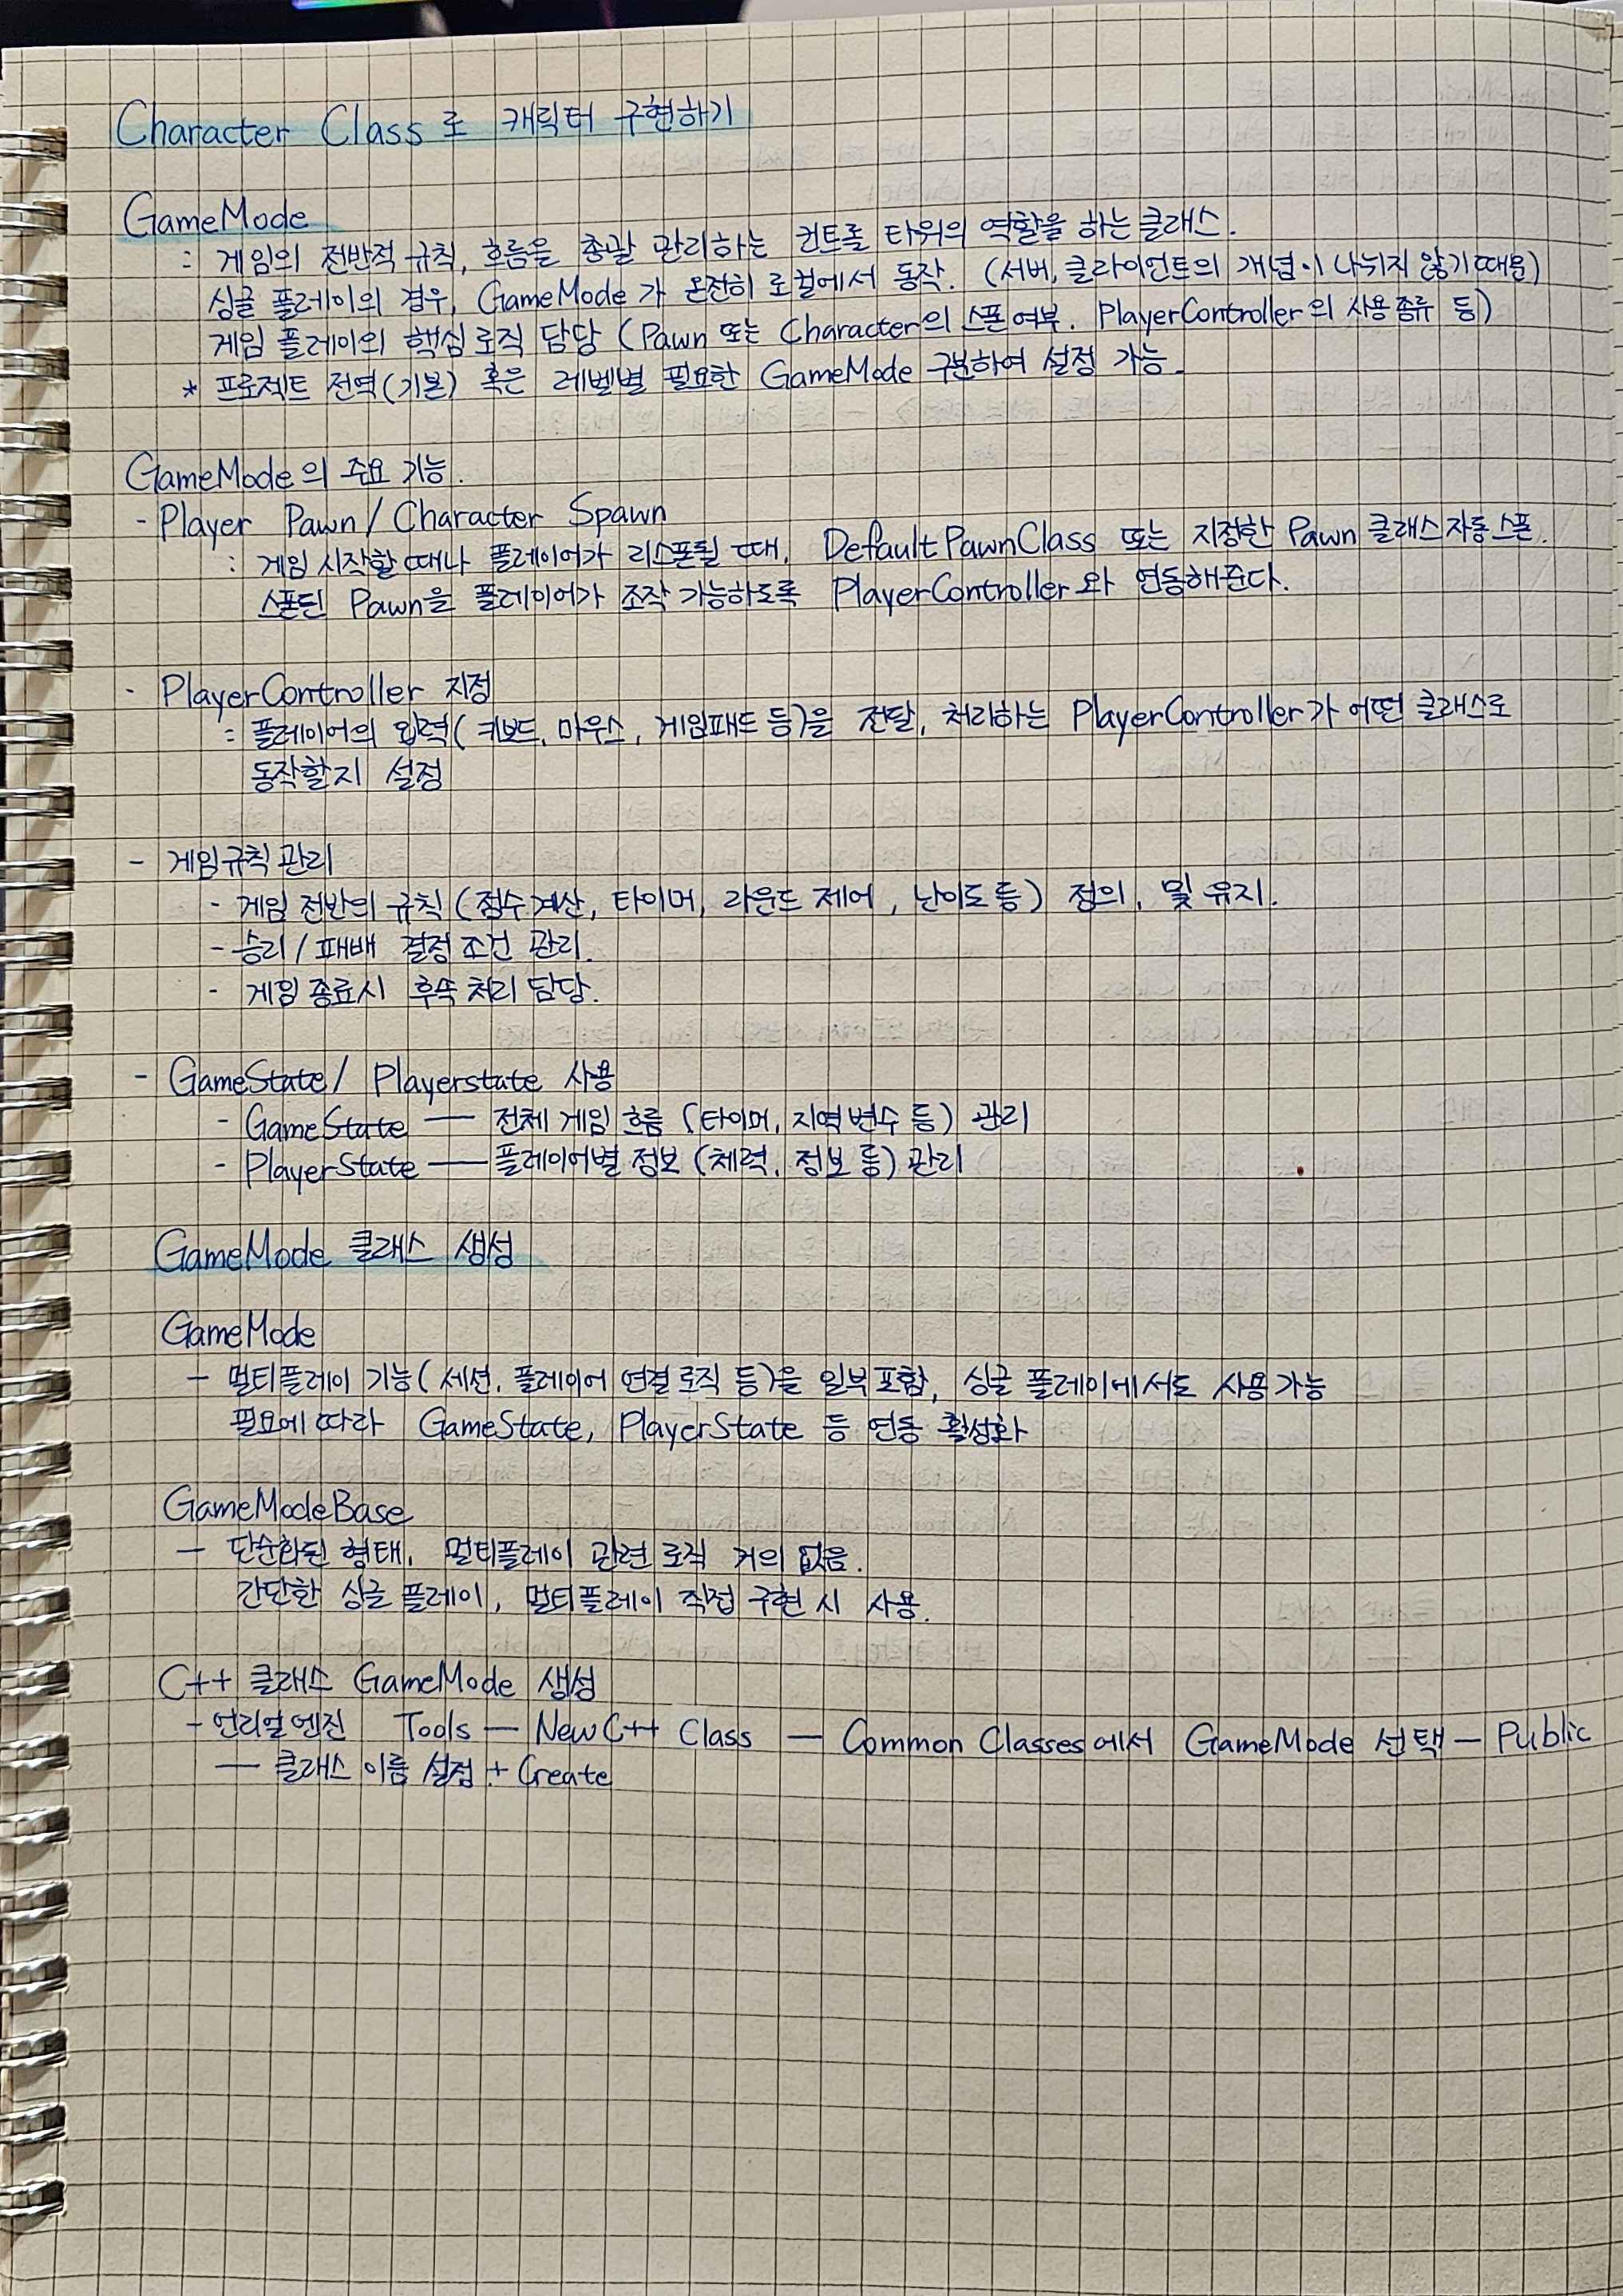 Character Class로 캐릭터 구현하기
GameMode
: 게임의 전반적 규칙, 흐름을 총괄 관리하는 컨트롤 타워의 역할을 하는 클래스.
싱글 플레이의 경우, GameMode가 온전히 로컬에서 동작. (서버, 클라이언트의 개념이 나뉘지 않기 때문)
게임 플레이의 핵심 로직 담당 (Pawn 또는 Character의 스폰 여부. PlayerController의 사용 종류 등)
* 프로젝트 전역(기본) 혹은 레벨별 필요한 GameMode 구분하여 설정 가능.
GameMode의 주요 기능.
- Player Pawn / Character Spawn
: 게임 시작할 때나 플레이어가 리스폰될 때, DefaultPawnClass 또는 지정한 Pawn 클래스 자동 스폰.
스폰된 Pawn을 플레이어가 조작 가능하도록 PlayerController와 연동해준다.
- PlayerController 지정
: 플레이어의 입력( 키보드, 마우스, 게임패드 등)을 전달, 처리하는 PlayerController가 어떤 클래스로
동작할지 설정
- 게임규칙 관리
- 게임 전반의 규칙 (점수 계산, 타이머, 라운드 제어, 난이도 등) 정의, 및 유지.
- 승리 / 패배 결정 조건 관리.
- 게임 종료시 후속 처리 담당.
- GameState / Playerstate 사용
- GameState — 전체 게임 흐름 (타이머, 지역 변수 등) 관리
- PlayerState — 플레이어별 정보 (체력, 정보 등) 관리
GameMode 클래스 생성
GameMode
- 멀티플레이 기능( 세션, 플레이어 연결 로직 등)을 일부 포함, 싱글 플레이에서도 사용 가능
필요에 따라 GameState, PlayerState 등 연동 활성화
GameModeBase
- 단순화된 형태. 멀티플레이 관련 로직 거의 없음.
간단한 싱글 플레이, 멀티플레이 직접 구현 시 사용.
C++ 클래스 GameMode 생성
- 언리얼 엔진 Tools — New C++ Class — Common Classes에서 GameMode 선택 — Public
— 클래스 이름 설정 + Create